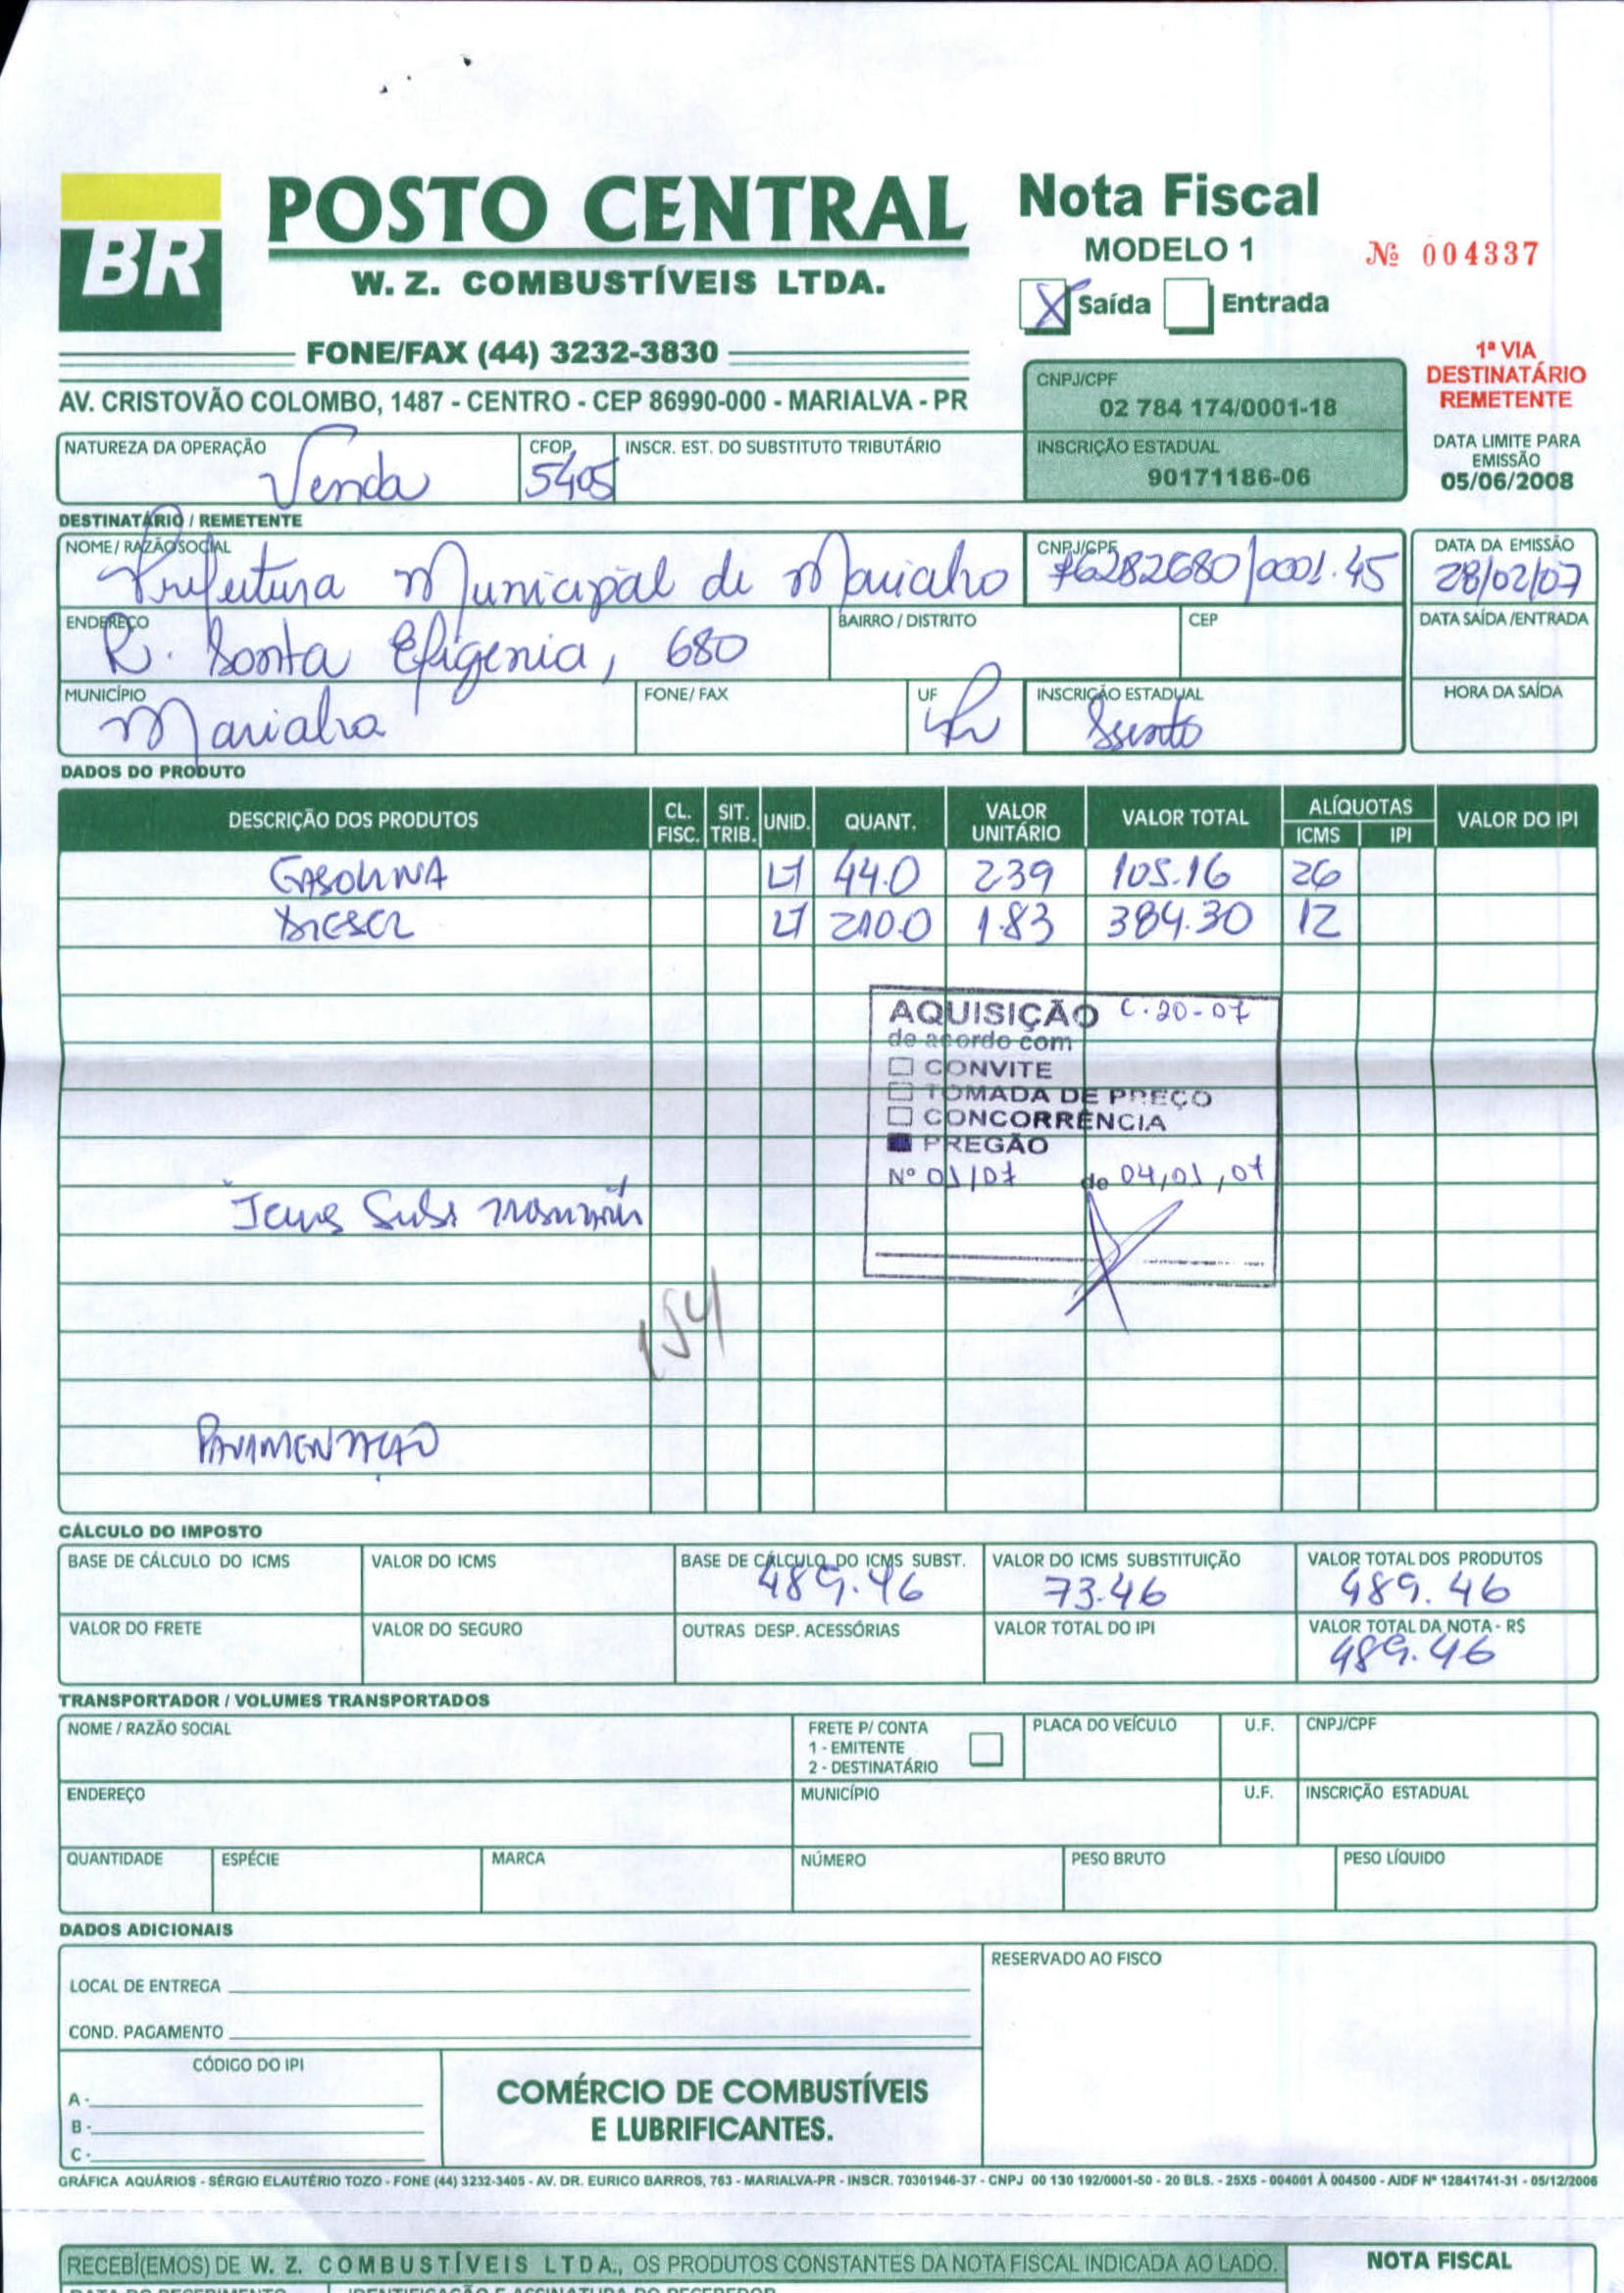 BR
POSTO CENTRAL
W. Z. COMBUSTÍVEIS LTDA.
FONE/FAX (44) 3232-3830
AV. CRISTOVÃO COLOMBO, 1487 - CENTRO - CEP 86990-000 - MARIALVA - PR
Nota Fiscal
MODELO 1
Nº 004337
X Saída Entrada
1ª VIA
DESTINATÁRIO
REMETENTE
CNPJ/CPF
02 784 174/0001-18
INSCRIÇÃO ESTADUAL
90171186-06
DATA LIMITE PARA
EMISSÃO
05/06/2008
NATUREZA DA OPERAÇÃO CFOP INSCR. EST. DO SUBSTITUTO TRIBUTÁRIO
Venda 5405
DESTINATÁRIO / REMETENTE
NOME / RAZÃO SOCIAL CNPJ/CPF DATA DA EMISSÃO
Prefeitura Municipal de Marialva 76282680/0001.45 28/02/07
ENDEREÇO BAIRRO / DISTRITO CEP DATA SAÍDA /ENTRADA
R. Santa Efigenia, 680
MUNICÍPIO FONE/ FAX UF INSCRIÇÃO ESTADUAL HORA DA SAÍDA
Marialva Pr Isento
DADOS DO PRODUTO
DESCRIÇÃO DOS PRODUTOS CL. FISC. SIT. TRIB. UNID. QUANT. VALOR UNITÁRIO VALOR TOTAL ALÍQUOTAS ICMS IPI VALOR DO IPI
GASOLINA LT 44.0 239 105.16 26
DIESEL LT 210.0 1.83 384.30 12
AQUISIÇÃO C. 20-07
de acordo com
CONVITE
TOMADA DE PREÇO
CONCORRÊNCIA
PREGÃO
Nº 01/07 de 04,01,07
Icms Subs
154
PAVIMENTAÇÃO
CÁLCULO DO IMPOSTO
BASE DE CÁLCULO DO ICMS VALOR DO ICMS BASE DE CÁLCULO DO ICMS SUBST. VALOR DO ICMS SUBSTITUIÇÃO VALOR TOTAL DOS PRODUTOS
489.46 73.46 489.46
VALOR DO FRETE VALOR DO SEGURO OUTRAS DESP. ACESSÓRIAS VALOR TOTAL DO IPI VALOR TOTAL DA NOTA - R$
489.46
TRANSPORTADOR / VOLUMES TRANSPORTADOS
NOME / RAZÃO SOCIAL FRETE P/ CONTA PLACA DO VEÍCULO U.F. CNPJ/CPF
1 - EMITENTE
2 - DESTINATÁRIO
ENDEREÇO MUNICÍPIO U.F. INSCRIÇÃO ESTADUAL
QUANTIDADE ESPÉCIE MARCA NÚMERO PESO BRUTO PESO LÍQUIDO
DADOS ADICIONAIS
RESERVADO AO FISCO
LOCAL DE ENTREGA
COND. PAGAMENTO
CÓDIGO DO IPI
A -
B -
C -
COMÉRCIO DE COMBUSTÍVEIS
E LUBRIFICANTES.
GRÁFICA AQUÁRIOS - SÉRGIO ELAUTÉRIO TOZO - FONE (44) 3232-3405 - AV. DR. EURICO BARROS, 763 - MARIALVA-PR - INSCR. 70301946-37 - CNPJ 00 130 192/0001-50 - 20 BLS. - 25X5 - 004001 À 004500 - AIDF Nº 12841741-31 - 05/12/2006
RECEBI(EMOS) DE W. Z. COMBUSTÍVEIS LTDA., OS PRODUTOS CONSTANTES DA NOTA FISCAL INDICADA AO LADO. NOTA FISCAL
DATA DO RECEBIMENTO IDENTIFICAÇÃO E ASSINATURA DO RECEBEDOR